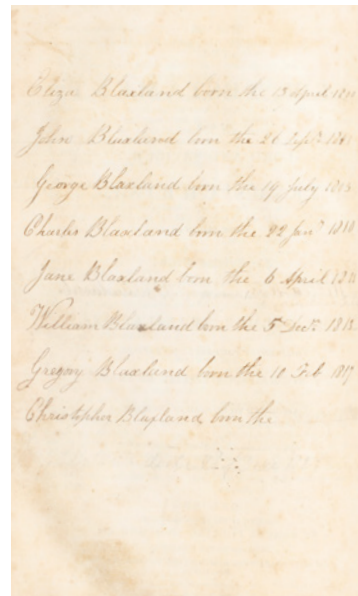 Eliza Blaxland born the 13 April
John Blaxland born the 26 Sept.
George Blaxland born the 19 July
Charles Blaxland born the 22 Jany 1810
Jane Blaxland born the 6 April
William Blaxland born the 5 Decr.
Gregory Blaxland born the 10 Feb 1817
Christopher Blaxland born the